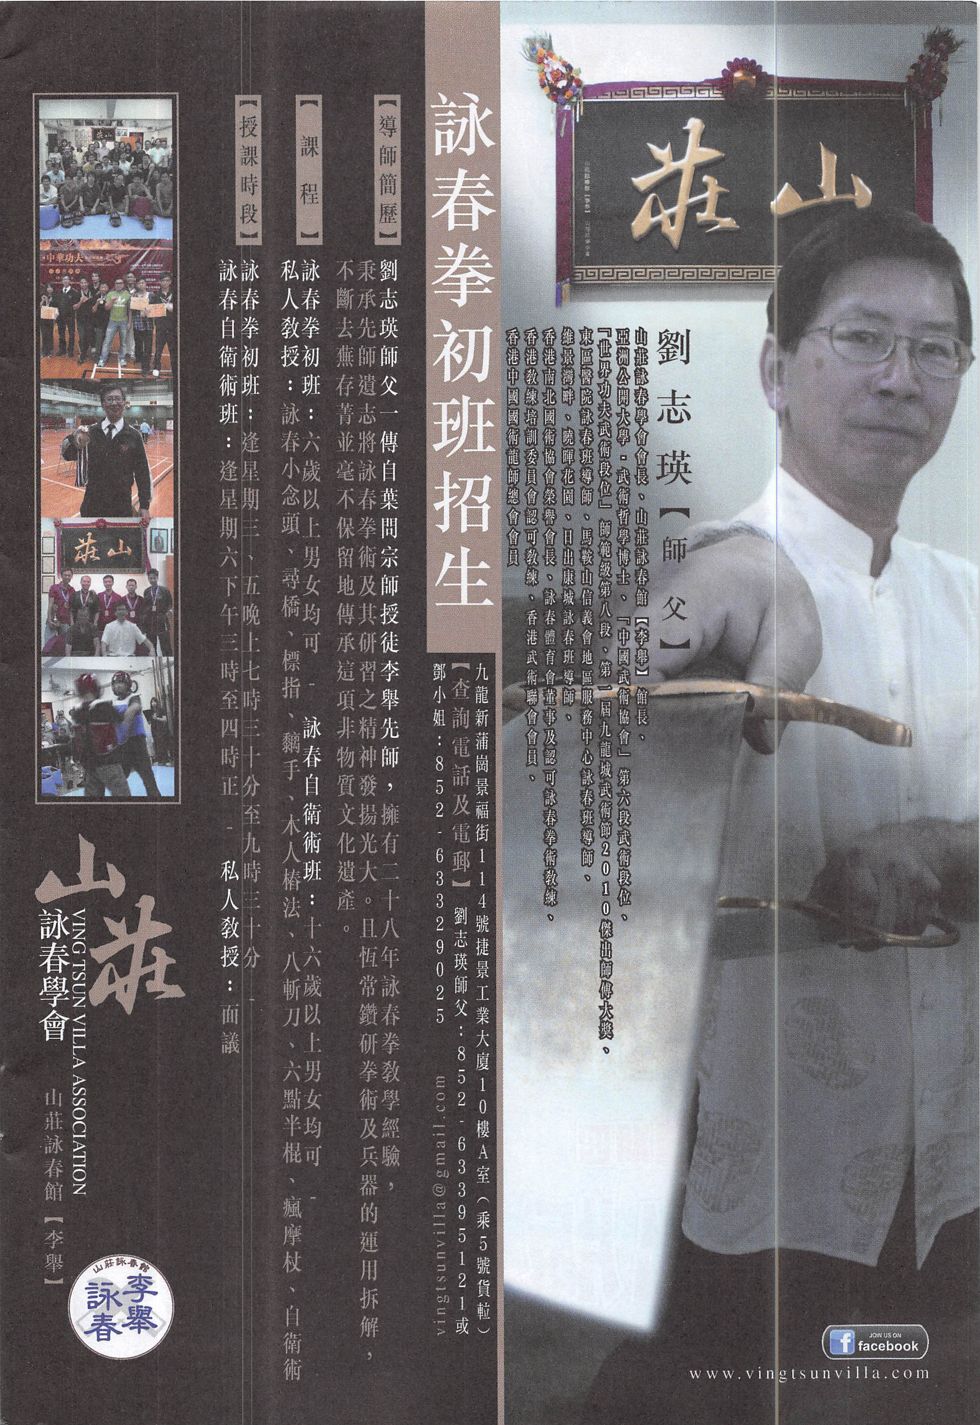 山莊
劉志瑛【師父】
山莊詠春學會會長、山莊詠春館【李舉】館長、
亞洲公開大學-武術哲學博士、「中國武術協會」第六段武術段位、
『世界功夫武術段位』師範級第八段、第一屆九龍城武術節2010傑出師傅大獎、
東區醫院詠春班導師、馬鞍山信義會地區服務中心詠春班導師、
維景灣畔、曉暉花園、日出康城詠春班導師、
香港南北國術協會榮譽會長、詠春體育會董事及認可詠春拳術教練、
香港教練培訓委員會認可教練、香港武術聯會會員、
香港中國國術龍師總會會員
詠春拳初班招生
九龍新蒲崗景福街114號捷景工業大廈10樓A室（乘5號貨𨋢）
【查詢電話及電郵】劉志瑛師父：852-63395121或
鄧小姐：852-63329025 vingtsunvilla@gmail.com
【導師簡歷】
劉志瑛師父一傳自葉問宗師授徒李舉先師，擁有二十八年詠春拳教學經驗，
秉承先師遺志將詠春拳術及其研習之精神發揚光大。且恆常鑽研拳術及兵器的運用拆解，
不斷去蕪存菁並毫不保留地傳承這項非物質文化遺產。
【課程】
詠春拳初班：六歲以上男女均可 - 詠春自衛術班：十六歲以上男女均可 -
私人教授：詠春小念頭、尋橋、標指、黐手、木人樁法、八斬刀、六點半棍、瘋摩杖、自衛術
【授課時段】
詠春拳初班：逢星期三、五晚上七時三十分至九時三十分 -
詠春自衛術班：逢星期六下午三時至四時正 - 私人教授：面議
中華功夫
山莊
山莊
詠春學會
VING TSUN VILLA ASSOCIATION
山莊詠春館【李舉】
山莊詠春館
李舉
詠春
JOIN US ON
facebook
www.vingtsunvilla.com